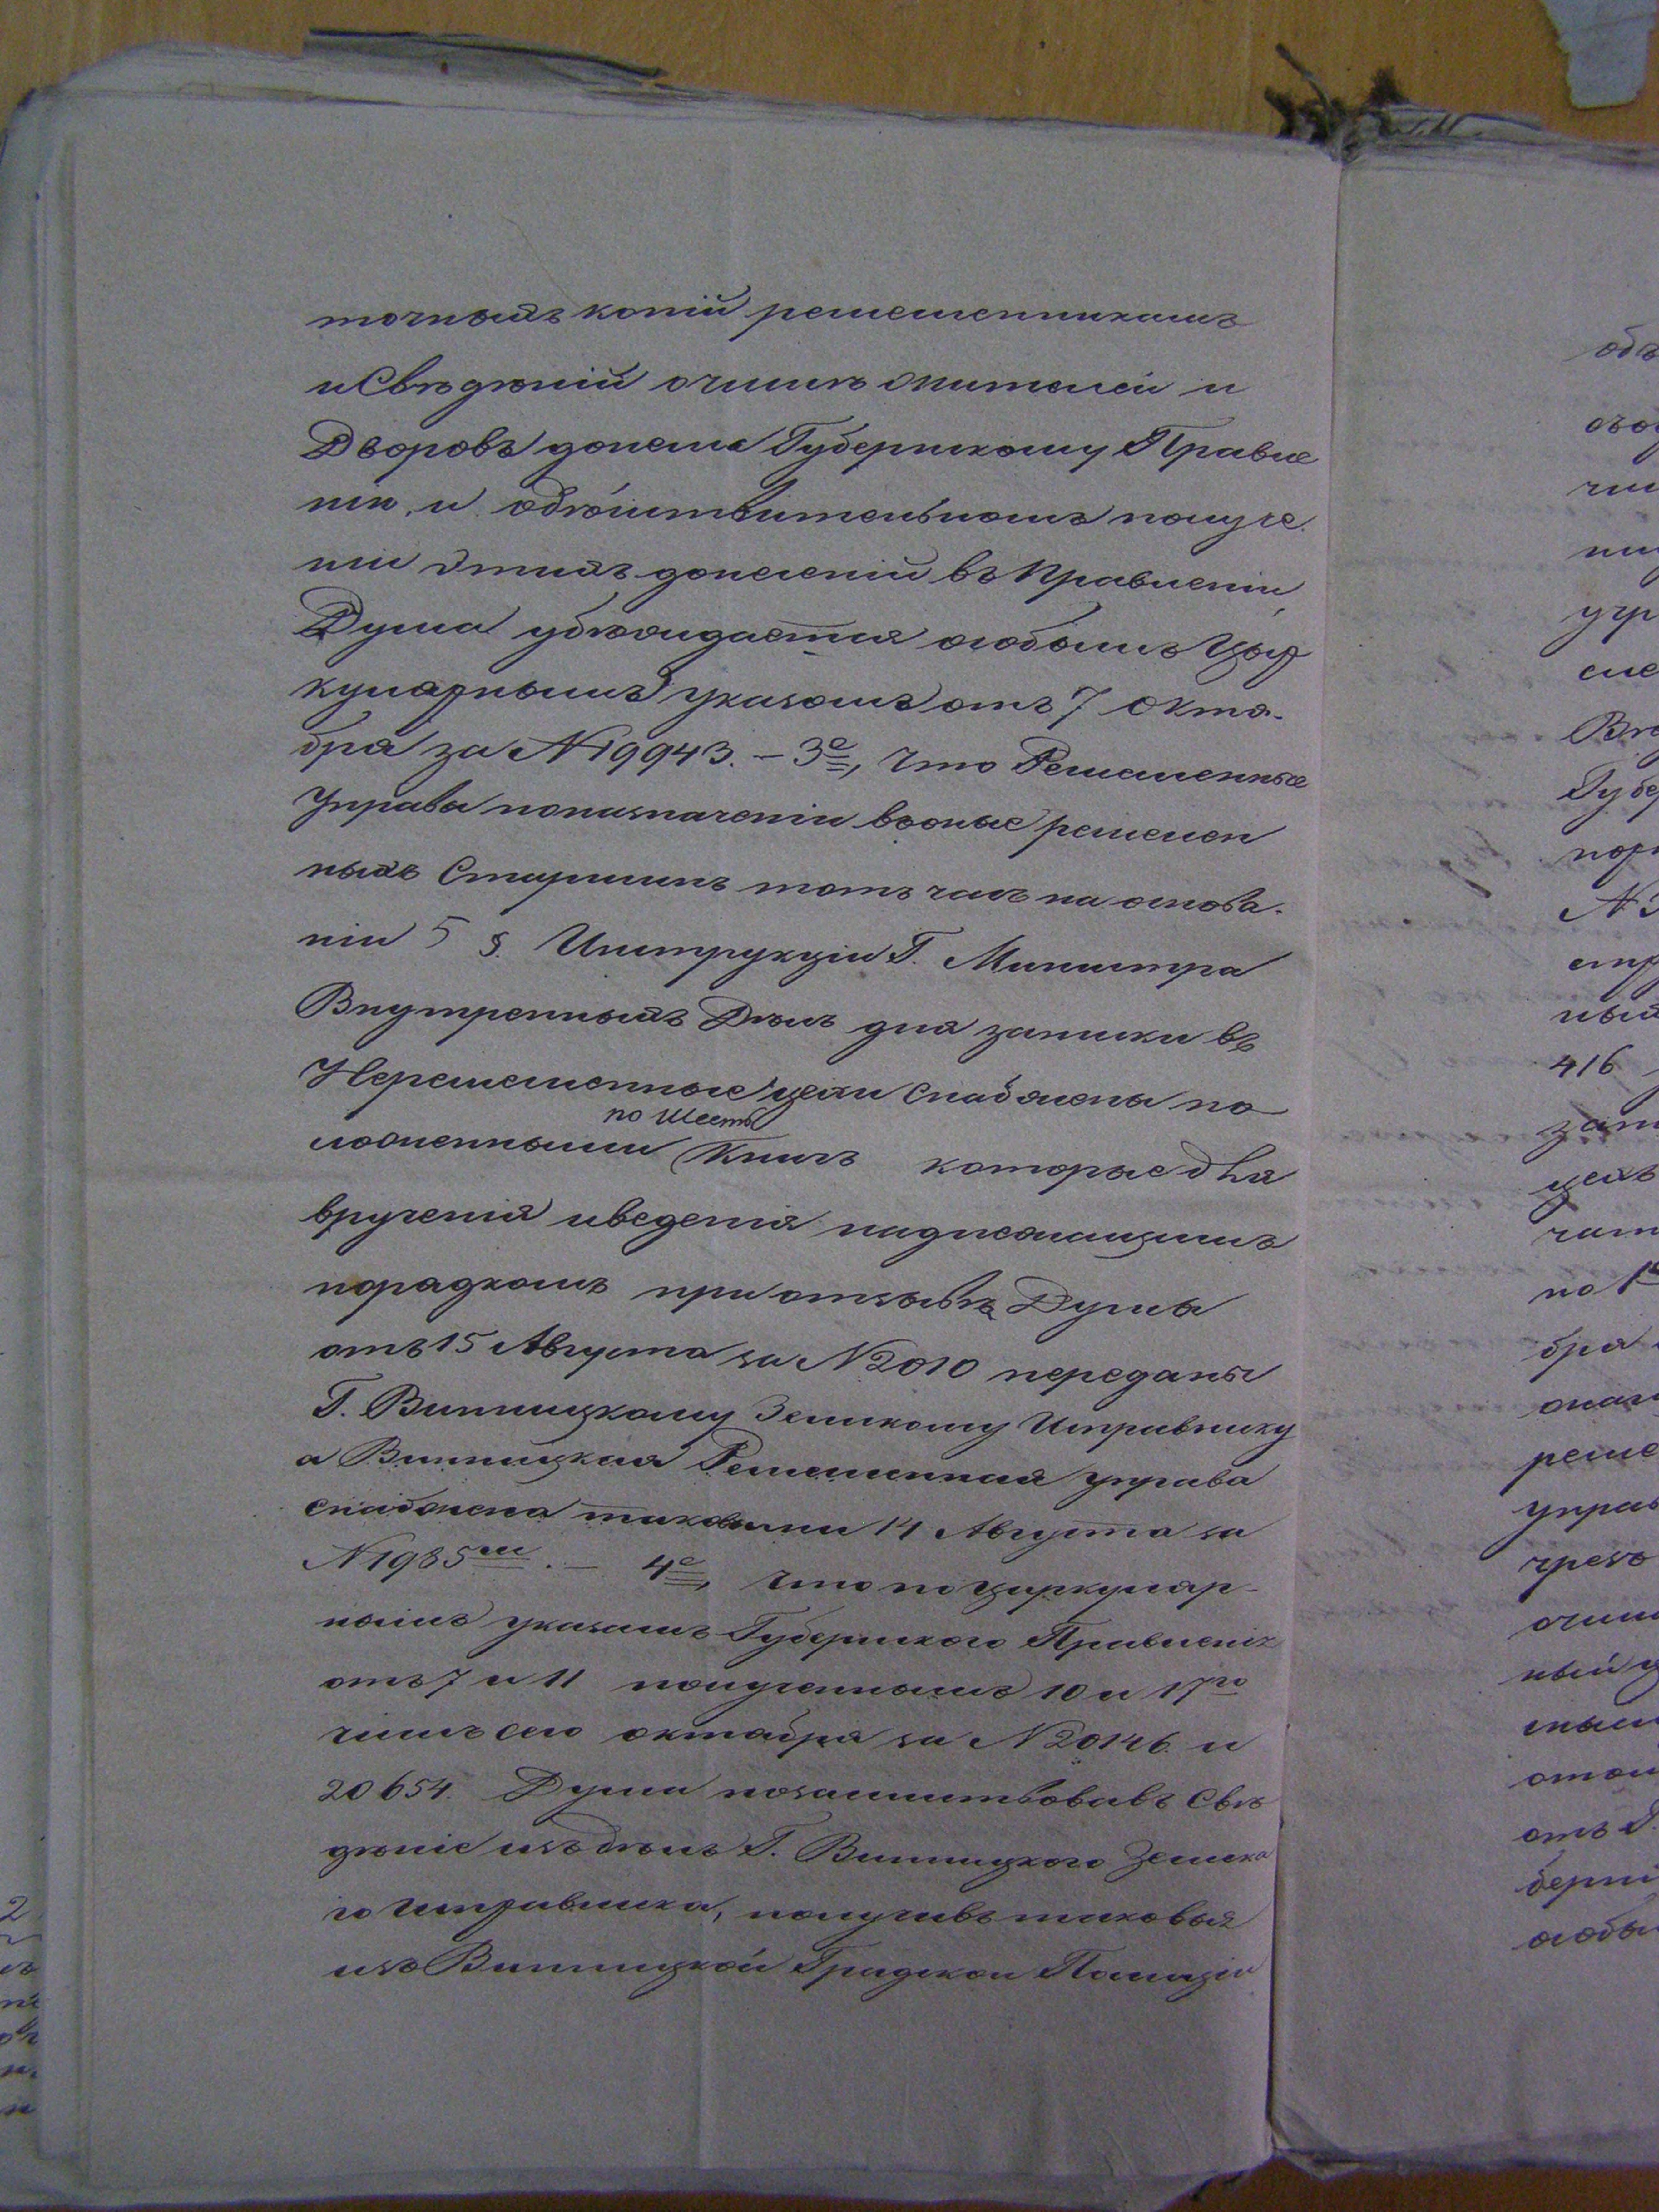 точныхъ копій ремесленникамъ
и Свѣдѣній очислѣ жителей и
Дворовъ донесла Губернскому Правле
нію, и одѣйствительномъ получе.
ніи этихъ донесеній въ Правленіи,
Дума убѣждается особымъ Цыр
кулярнымъ указомъ отъ 7 Октя-
бря за № 19943. – 3е, что Ремесленные
Управы поназначеніи вооные ремеслен
ныхъ Старшинъ тотъ часъ на основа-
ніи 5 §. Инструкціи Г. Министра
Внутренныхъ Дѣлъ для записки въ
Неремесленные цехи снабжены по
по шесть
ложенными Книгъ которые для
врученія иведенія надлежащимъ
порядкомъ при отзывѣ Думы
отъ 15 Августа за № 2010 переданы
Г. Винницкому Земскому Исправнику
а Винницкая Ремесленная управа
снабжена таковыми 14 Августа за
№ 1985мъ. – 4е, что по циркуляр-
нымъ указамъ Губернского Правленія
отъ 7 и 11 полученнымъ 10 и 17го
числъ сего октября за № 20146. и
20654. Дума позаимствовавъ Свѣ
дѣніе изъ дѣлъ Г. Винницкого Земска
го Исправника, получивъ таковыя
изъ Винницкой Градской Полиціи
2
объ
чи
учр
сле
Губе
пор
стр
ный
416
зап
цехъ
чит
по 1
бря
реме
управ
чрезъ
очи
ный
отъ
берн
особы